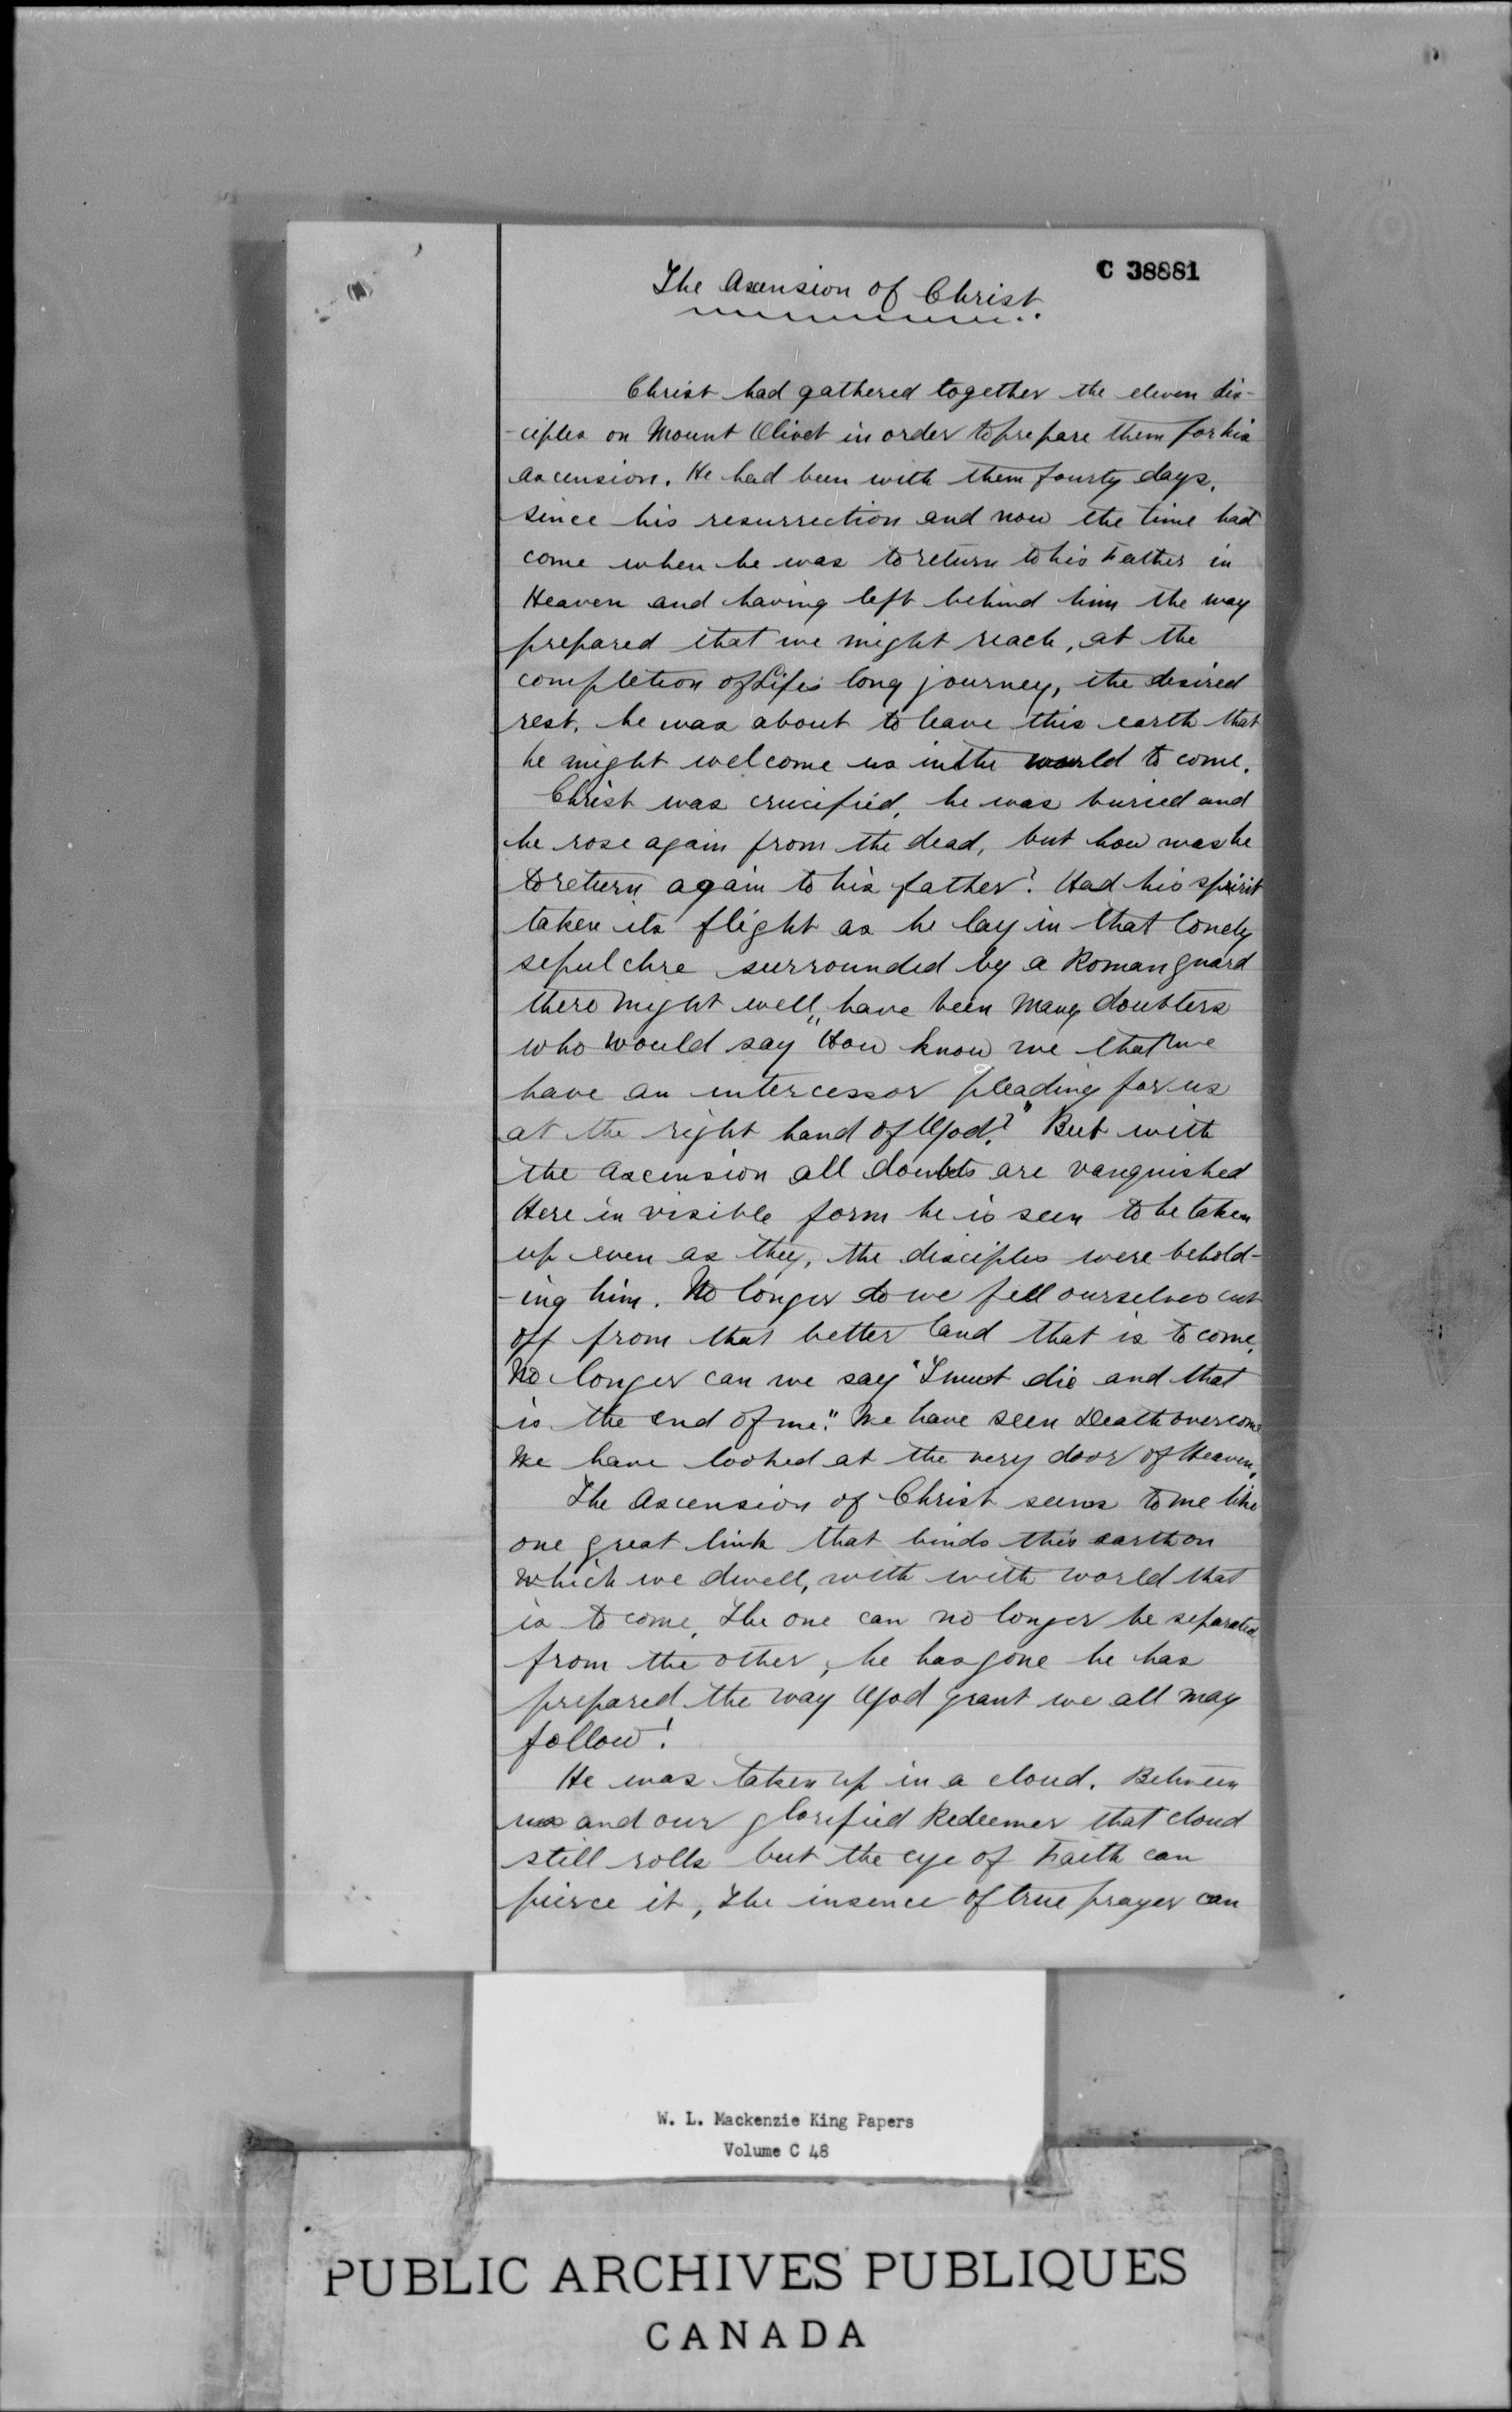 C 38881
The Ascension of Christ.
Christ had gathered together the eleven dis-
-ciples on Mount Olivet in order to prepare them for his
ascension. He had been with them fourty days,
since his resurrection and now the time had
come when he was to return to his Father in
Heaven and having left behind him the way
prepared that we might reach, at the
completion of Life's long journey, the desired
rest, he was about to leave this earth that
he might welcome us in the world to come.
Christ was crucified, he was buried and
he rose again from the dead, but how was he
to return again to his father? Had his spirit
taken its flight as he lay in that lonely
sepulchre surrounded by a Roman guard
there might well have been many doubters
who would say "How know we that we
have an intercessor pleading for us
at the right hand of God?" But with
the ascension all doubts are vanquished
Here in visible form he is seen to be taken
up even as they, the disciples were behold-
-ing him. No longer do we fell ourselves cut
off from that better land that is to come,
No longer can we say "I must die and that
is the end of me". We have seen Death overcome
We have looked at the very door of Heaven.
The Ascension of Christ seems to me like
one great link that binds this earth on
which we dwell, with with world that
is to come, The one can no longer be separated
from the other, he has gone he has
prepared the way God grant we all may
follow!
He was taken up in a cloud. Between
us and our glorified Redeemer that cloud
still rolls but the eye of Faith can
pierce it, The insence of true prayer can
W. L. Mackenzie King Papers
Volume C 48
PUBLIC ARCHIVES PUBLIQUES
CANADA